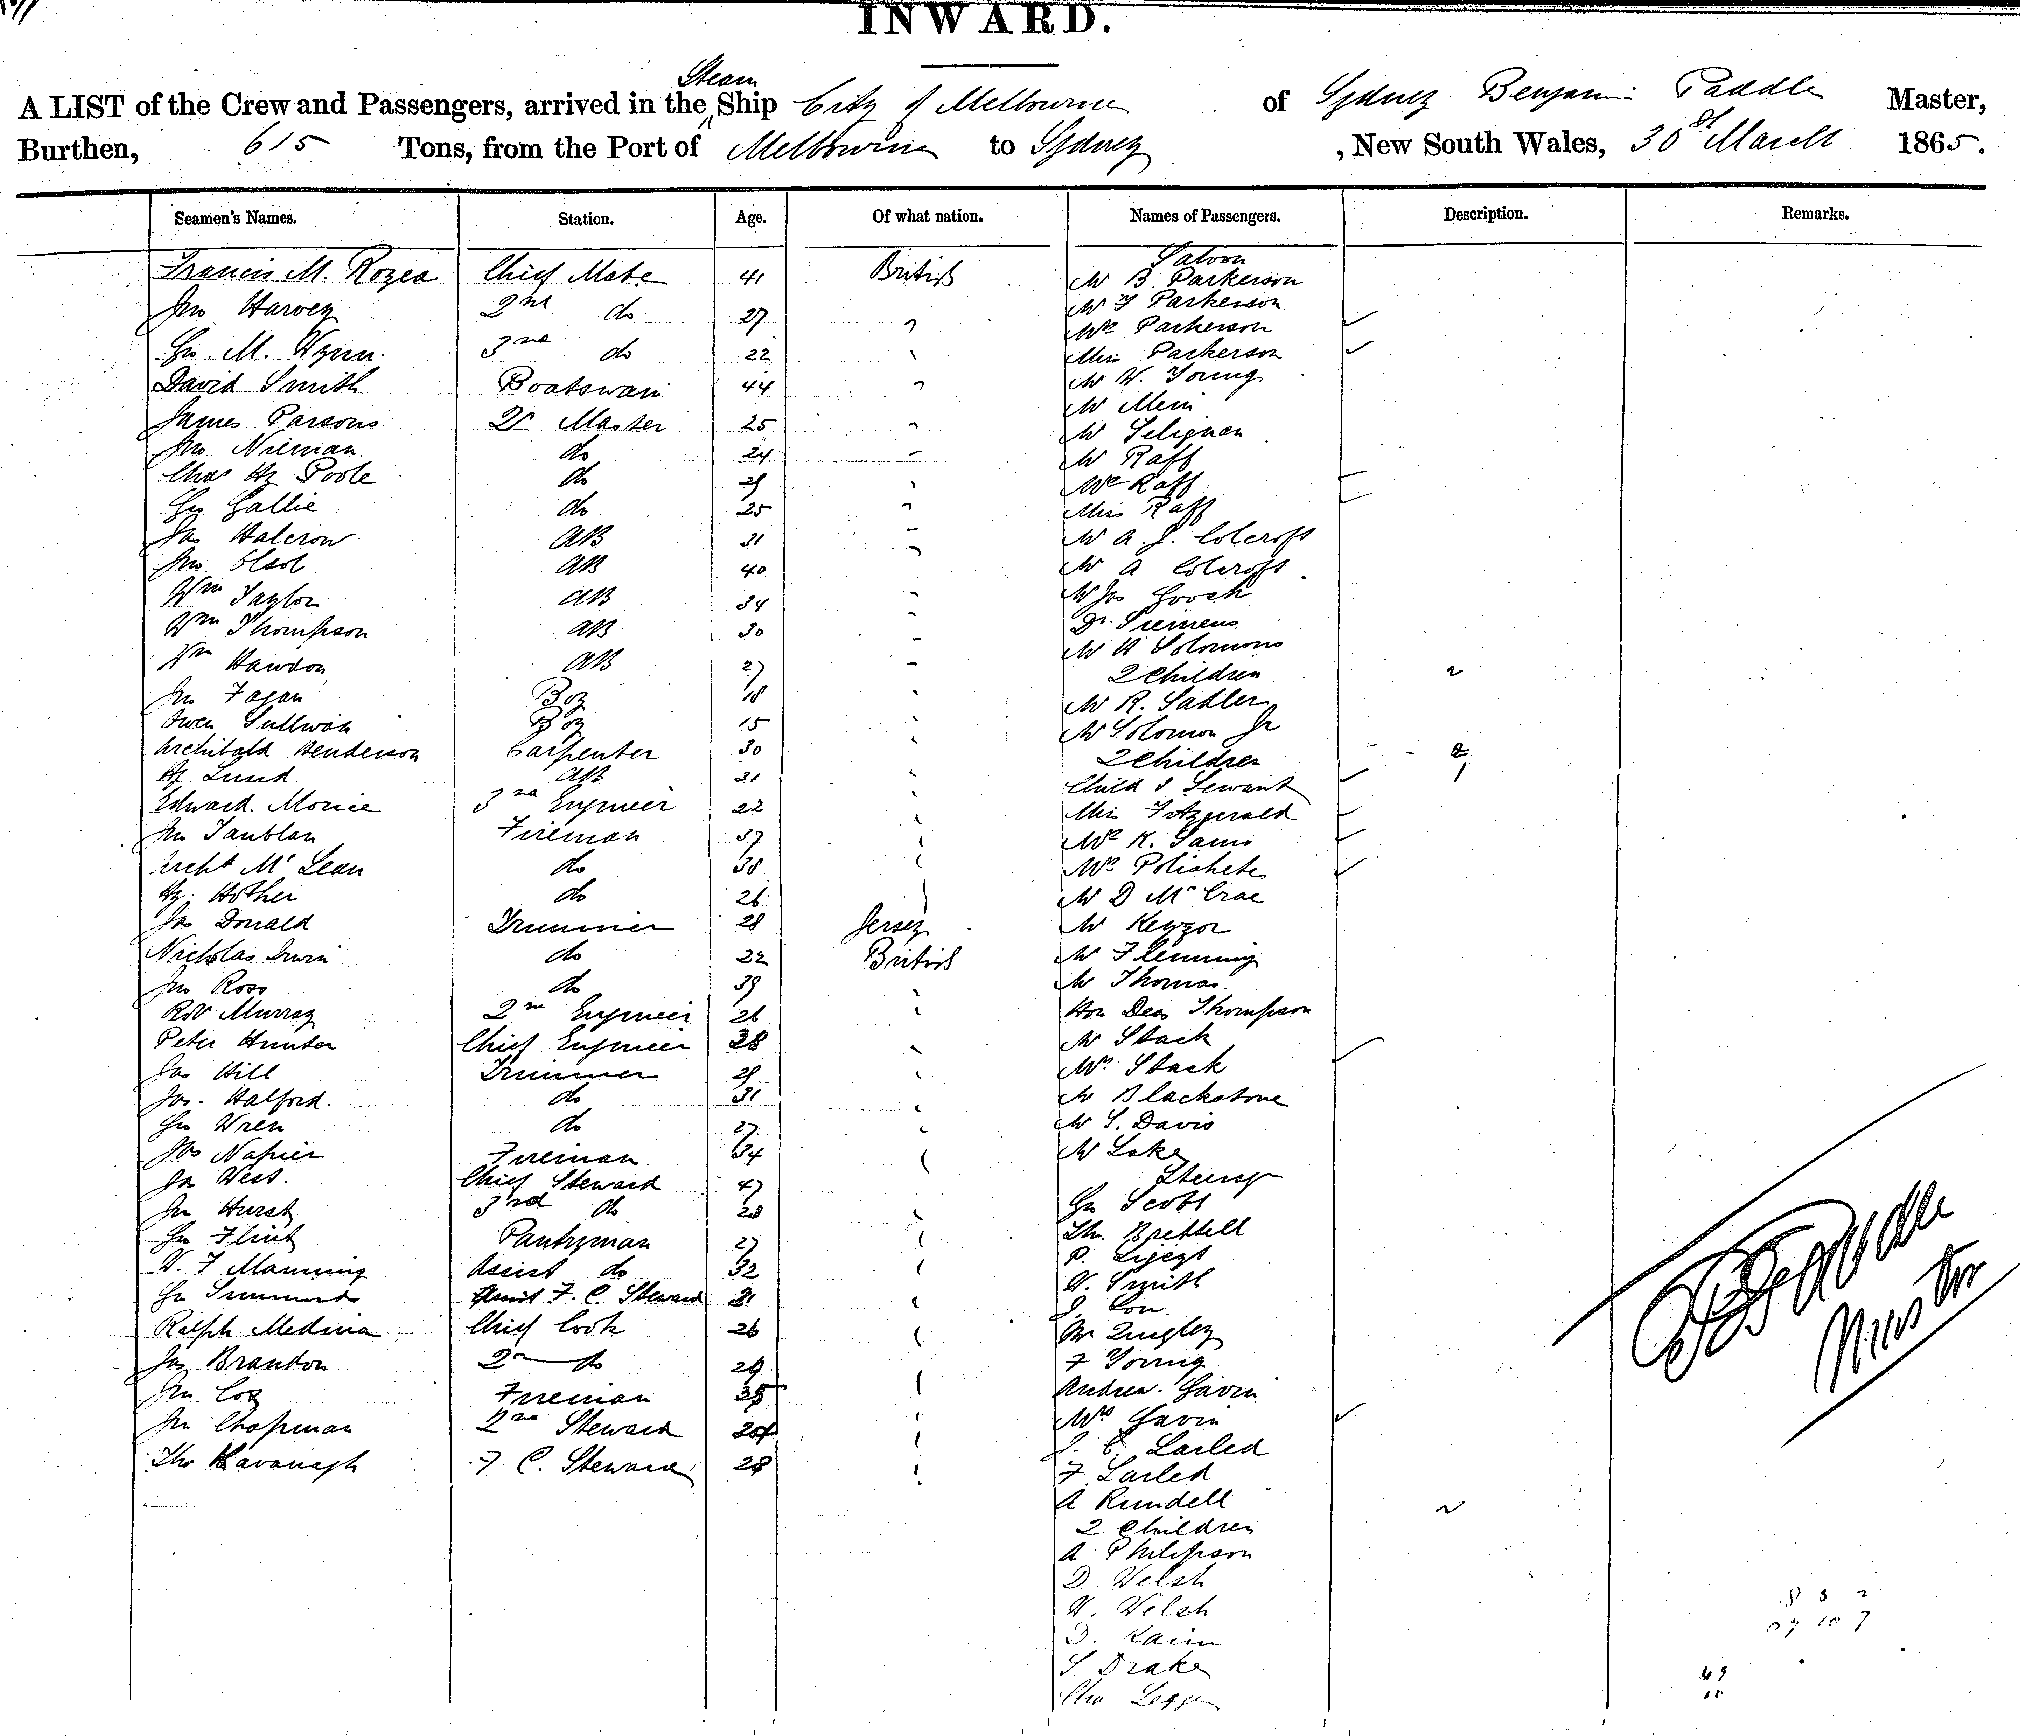 INWARD.
Steam
A LIST of the Crew and Passengers, arrived in the Ship City of Melbourne of Sydney Benjamin Paddle Master,
Burthen, 615 Tons, from the Port of Melbourne to Sydney , New South Wales, 30st March 1865.
Seamen's Names. Station. Age. Of what nation. Names of Passengers. Description. Remarks.
Saloon
Francis M. Rozea Chief Mate 41 British Mr B. Parkerson
Mr T Parkerson
Jno Harvey 2nd do 27 " Mrs Parkerson
Geo M. Wynn 3rd do 22 " Miss Parkerson
David Smith Boatswain 44 " Mr W. Young
Mr Mein
James Parsons Qr Master 25 " Mr Seligman
Jno Nieman do 24 " Mr Raff
Chas Hy Poole do " Mrs Raff
Geo Gallie do 25 " Miss Raff
Jas Halcrow AB 31 " Mr A. J. Colcroft
Jno AB 40 Mr A Colcroft
Wm Taylor AB 34 " Mr Jas Gooch
Wm Thompson AB 30 " Dr Siemens
Mr H Solomons
Wm Hawdon AB 27 " 2 Children 2
Jno Fagan Boy 18 " Mr R. Sadler
Owen Sullivan Boy 15 " Mr Solomon Jr
Archibald Henderson Carpenter 30 " 2 Children 2
Hy Lund AB 31 " Child & Servant 1
Edward Morice 3rd Engineer 22 " Miss Fitzgerald
Jno Fireman 37 " Mrs K. Sams
Archd Mc Lean do 38 " Mrs
Hy. Hother do 26 Mr D McCrae
Jas Donald Trimmer 28 Jersey Mr Keyzor
Nicholas Irwin do 22 British Mr Flemming
Jno Ross do 39 Mr Thomas
Robt Murray 2nd Engineer 26 " Hon Deas Thompson
Peter Hunter Chief Engineer 38 " Mr Stack
Jas Hill Trimmer " Mrs Stack
Jos. Halford do 31 " Mr Blackstone
Geo Wren do 27 " Mr S. Davis
Jas Napier Fireman 34 " Mr Lake
Jas West. Chief Steward 47 Steerage
Jno Hurst 3rd do 28 " Geo Scott
Geo Flint Pantryman 27 " Thos Brettell
W. F Manning Assist do 32 " P.
W. Smith
Geo Simmonds Assist F. C. Steward 31 " J. Con
Ralph Medina Chief Cook 26 " Quigley
Jas Brandon 2nd do 29 " F Young
Jno Coy Fireman 35 " Andrew Gavin
Jno Chapman 2nd Steward " Mrs Gavin
J. C. Larled
Thos Kavanagh F. C. Steward 28 " F Larled
A Rundell
2 Children 2
A Philipson
D Welsh
W. Welsh
D. Kain
S Drake
Chas Legge
B Paddle
Master